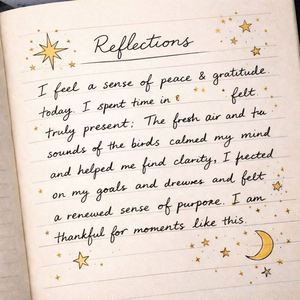 Reflections
I feel a sense of peace & gratitude.
today. I spent time in felt
truly present; The fresh air and
sounds of the birds calmed my mind
and helped me find clarity, I
on my goals and and felt
a renewed sense of purpose. I am
thankful for moments like this.